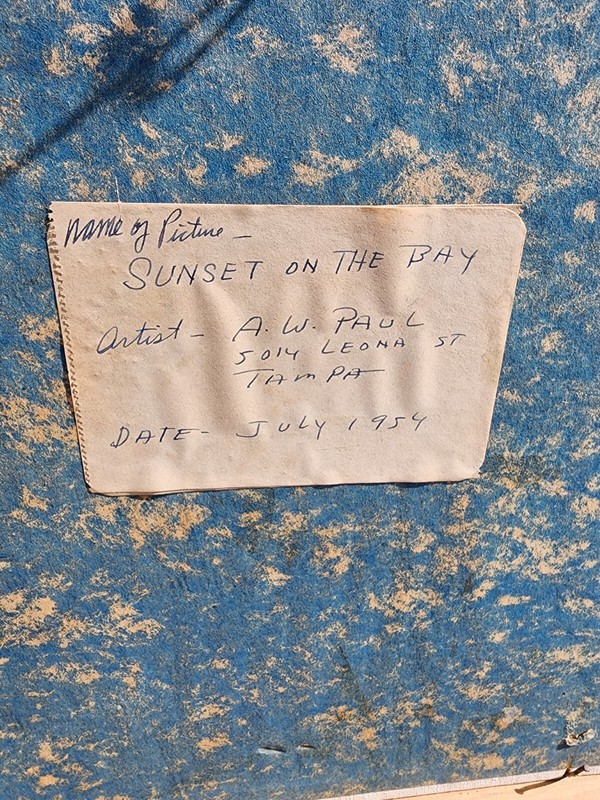 Name of Picture -
SUNSET ON THE BAY
Artist - A. W. PAUL
5014 LEONA ST
TAMPA
DATE - JULY 1954